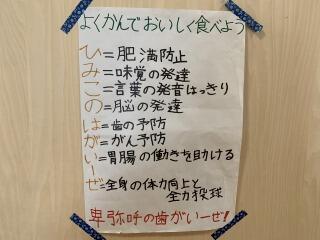 よくかんでおいしく食べよう
ひ=肥満防止
み=味覚の発達
こ=言葉の発音はっきり
の=脳の発達
は=歯の予防
が=がん予防
い=胃腸の働きを助ける
ー
ぜ=全身の体力向上と
全力投球
卑弥呼の歯がいーぜ!